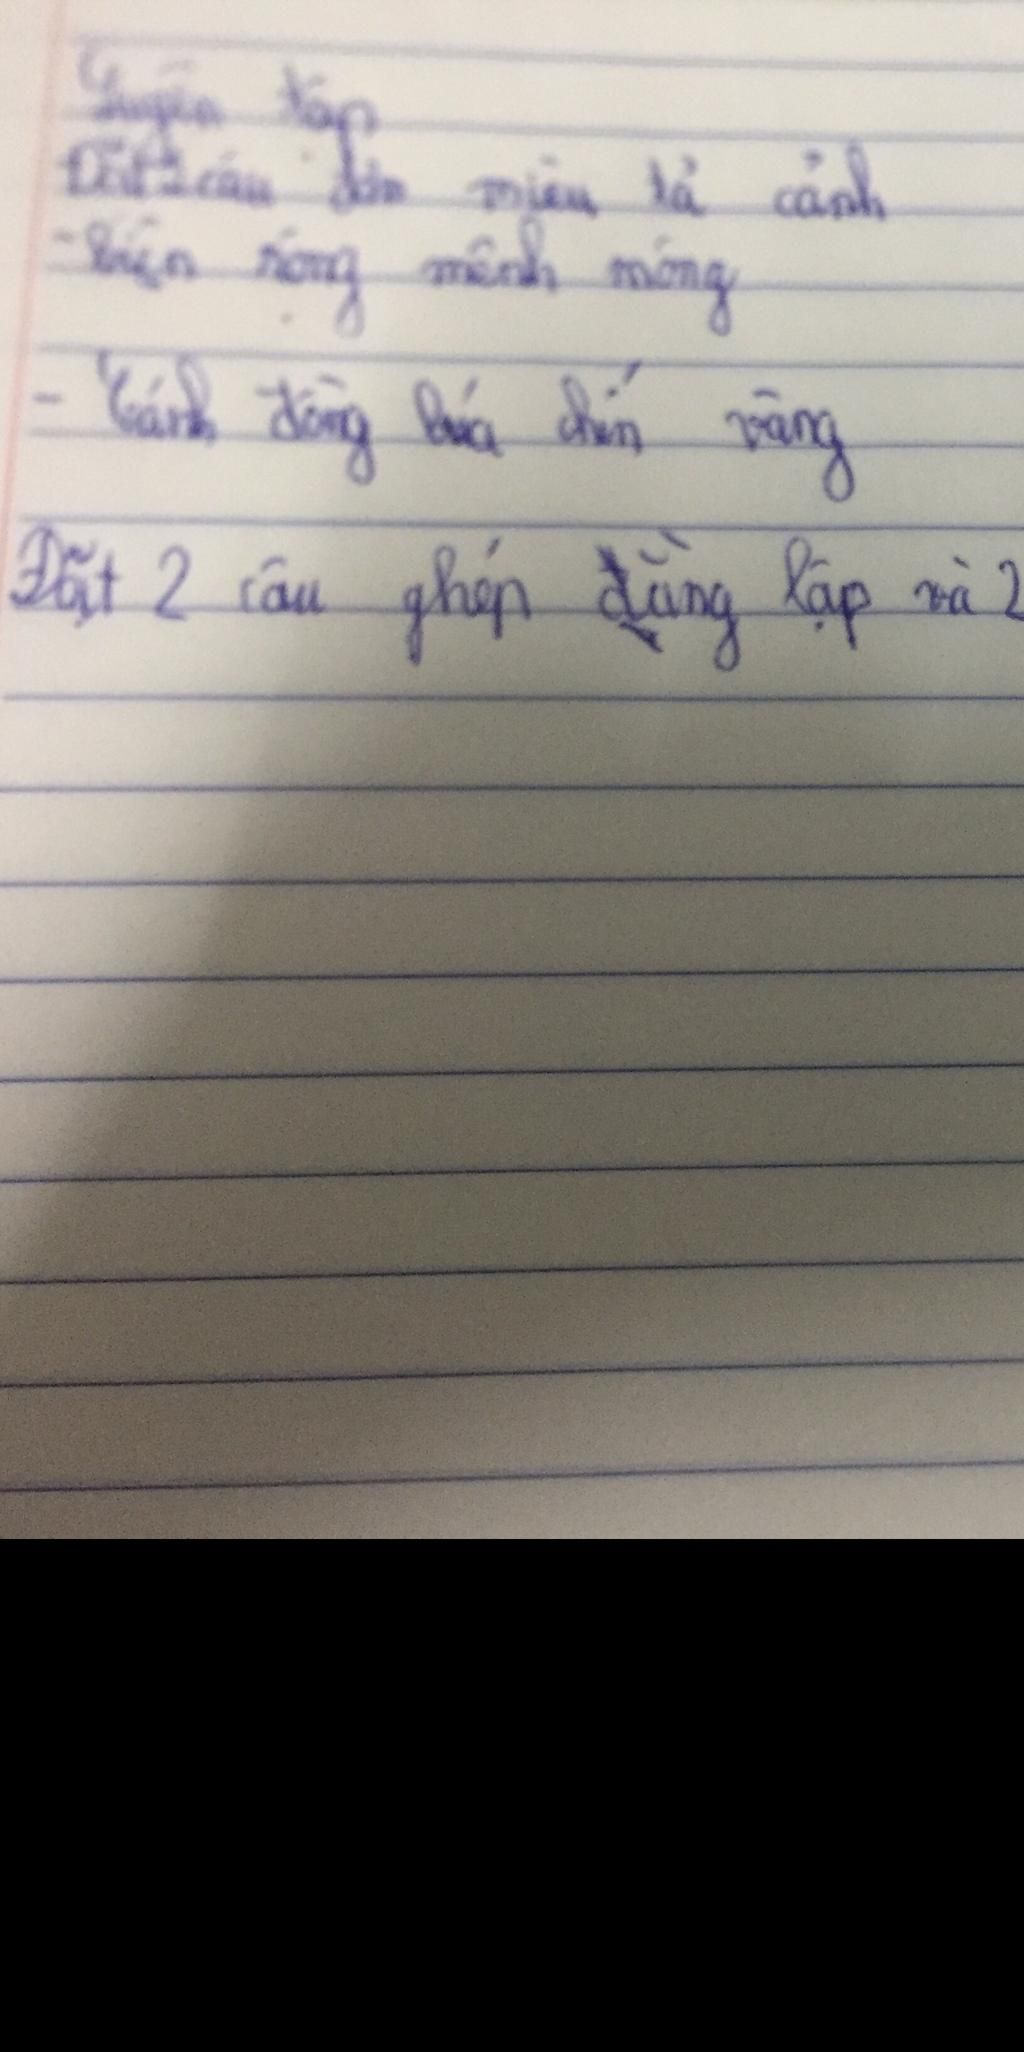 Luyện tập
Đặt 2 câu đơn miêu tả cảnh
- Biển rộng mênh mông
- Cánh đồng lúa chín vàng
Đặt 2 câu ghép đẳng lập và 2